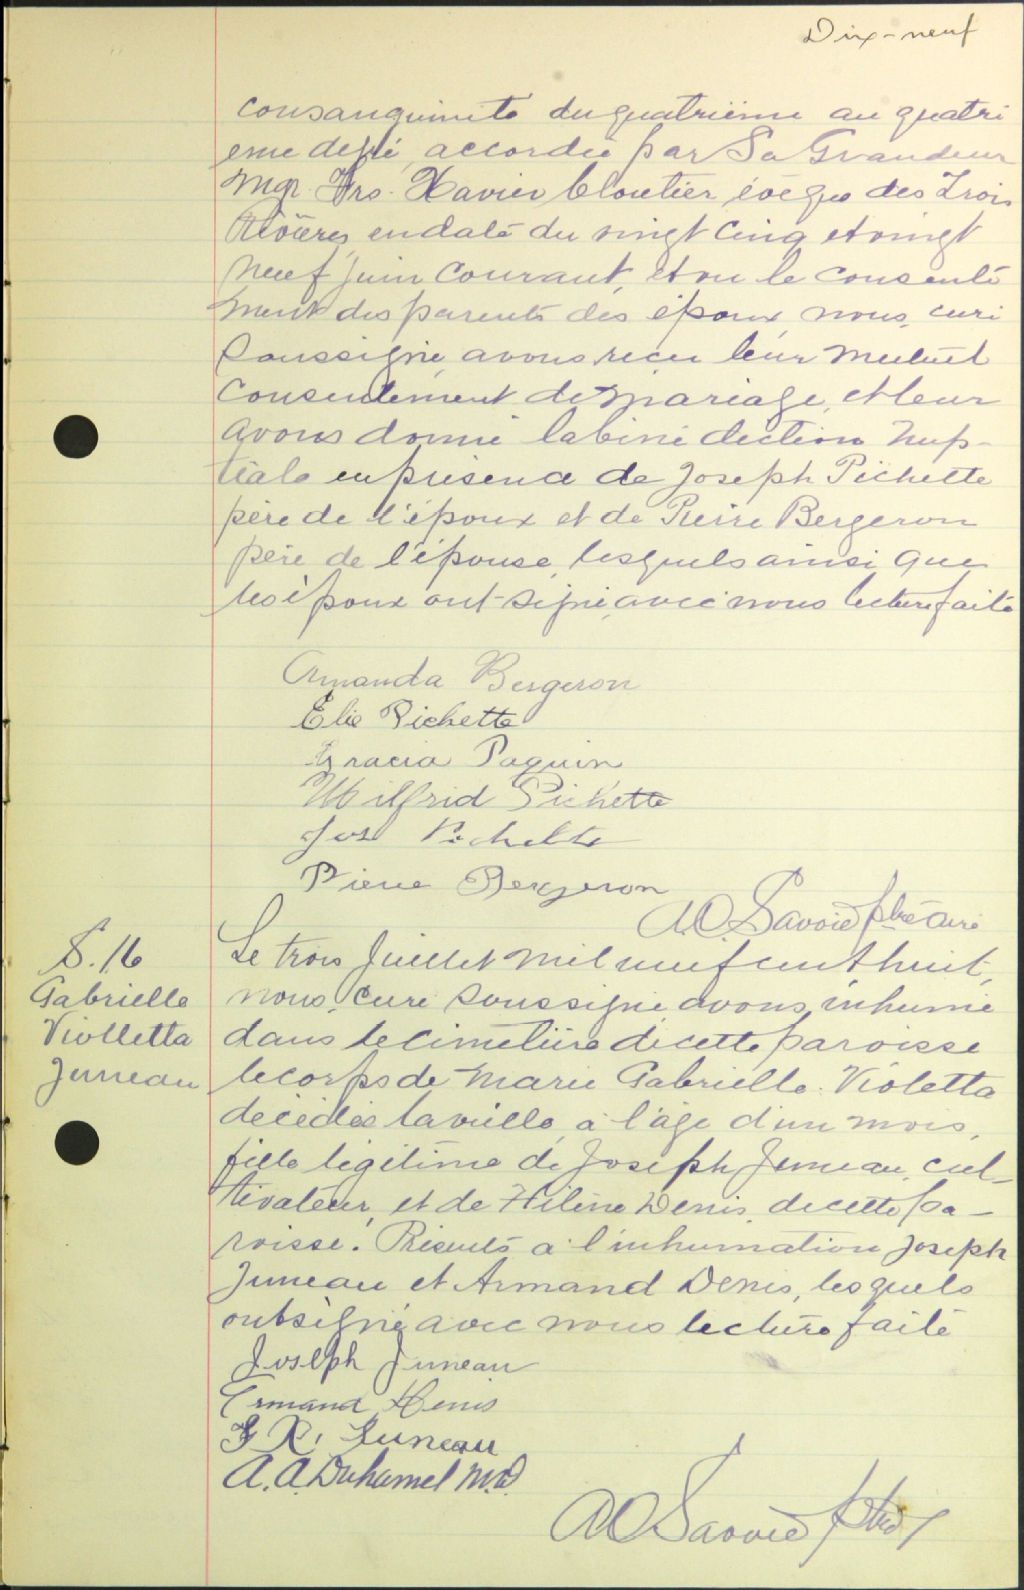 Dix-neuf
consanguinité du quatrième au quatri
ème degré, accordée par Sa Grandeur
Mgr. Frs. Xavier Cloutier, évêque des Trois
Rivières, en date du vingt cinq et vingt
neuf juin courant, et vu le consente
ment des parents des époux, nous, curé
soussigné, avons reçu leur mutuel
consentement de mariage, et leur
avons donné la bénédiction nup-
tiale en présence de Joseph Pichette
père de l'époux et de Pierre Bergeron
père de l'épouse, lesquels ainsi que
les époux ont signé, avec nous lecture faite
Amanda Bergeron
Élie Pichette
Gracia Paquin
Wilfrid Pichette
Jos Pichette
Pierre Bergeron
A.O. Savoie ptre curé
S. 16
Gabrielle
Violletta
Juneau
Le trois Juillet mil neuf cent huit,
nous, curé soussigné, avons inhumé
dans le cimetière de cette paroisse
le corps de Marie Gabrielle Violetta
décédée la veille, à l'âge d'un mois,
fille légitime de Joseph Juneau, cul-
tivateur, et de Hélène Denis, de cette pa-
roisse. Présents à l'inhumation Joseph
Juneau et Armand Denis, lesquels
ont signé avec nous lecture faite
Joseph Juneau
Armand Denis
F X. Juneau
A. A. Duhamel M.D.
A O Savoie ptre